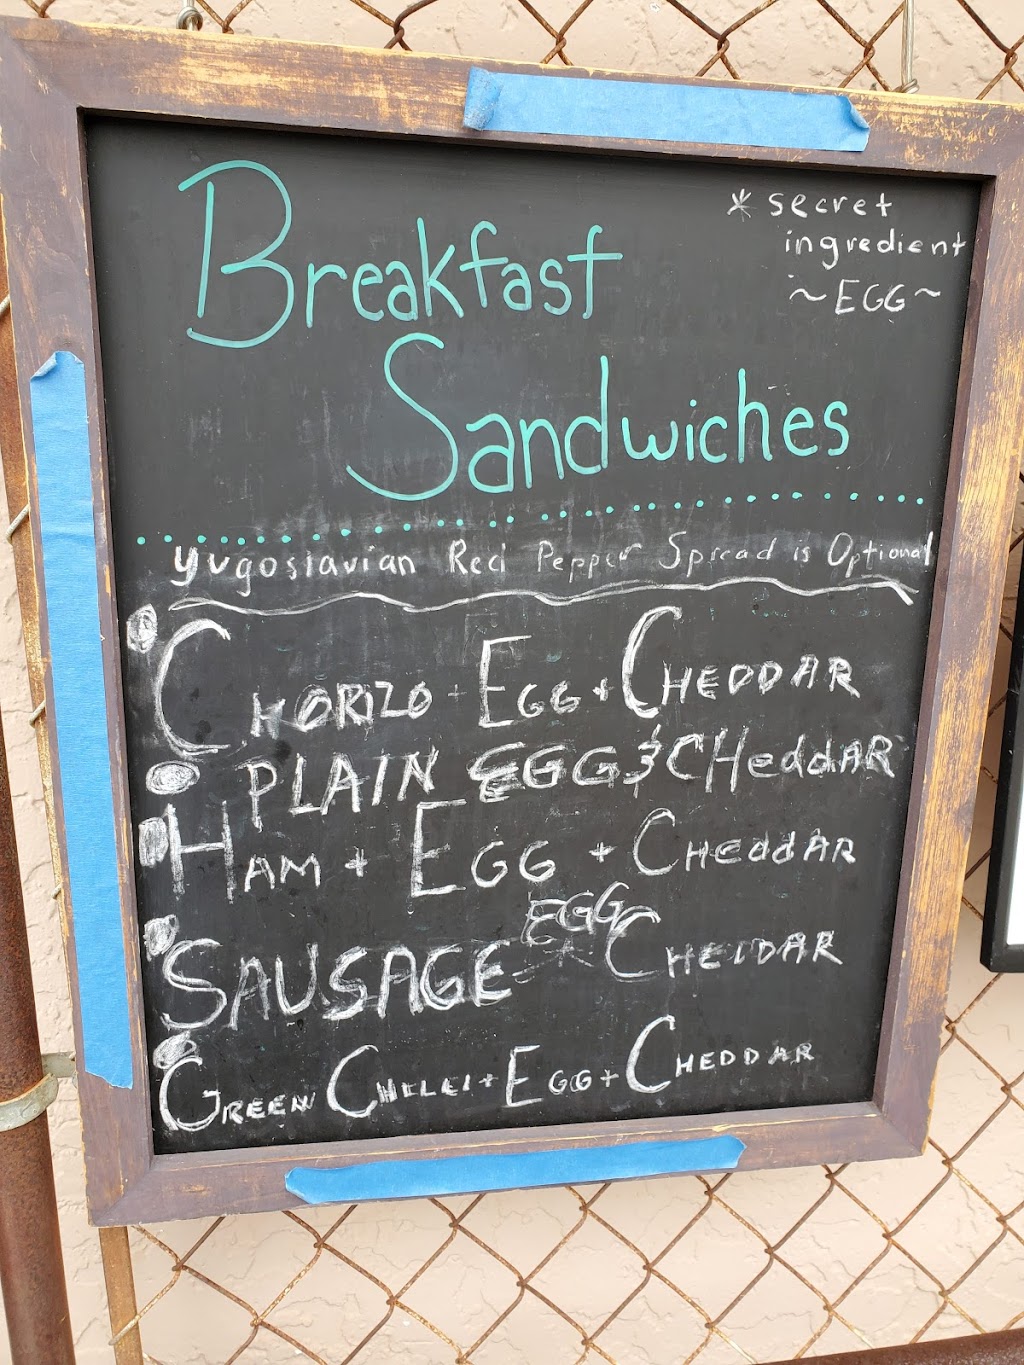 Breakfast
Sandwiches
* secret
ingredient
~ EGG ~
Yugoslavian Red Pepper Spread is Optional
CHORIZO + EGG + CHEDDAR
PLAIN EGG & CHeddAR
HAM + EGG + CHEddAR
EGG
SAUSAGE * CHEDDAR
GREEN CHILEI + EGG + CHEDDAR